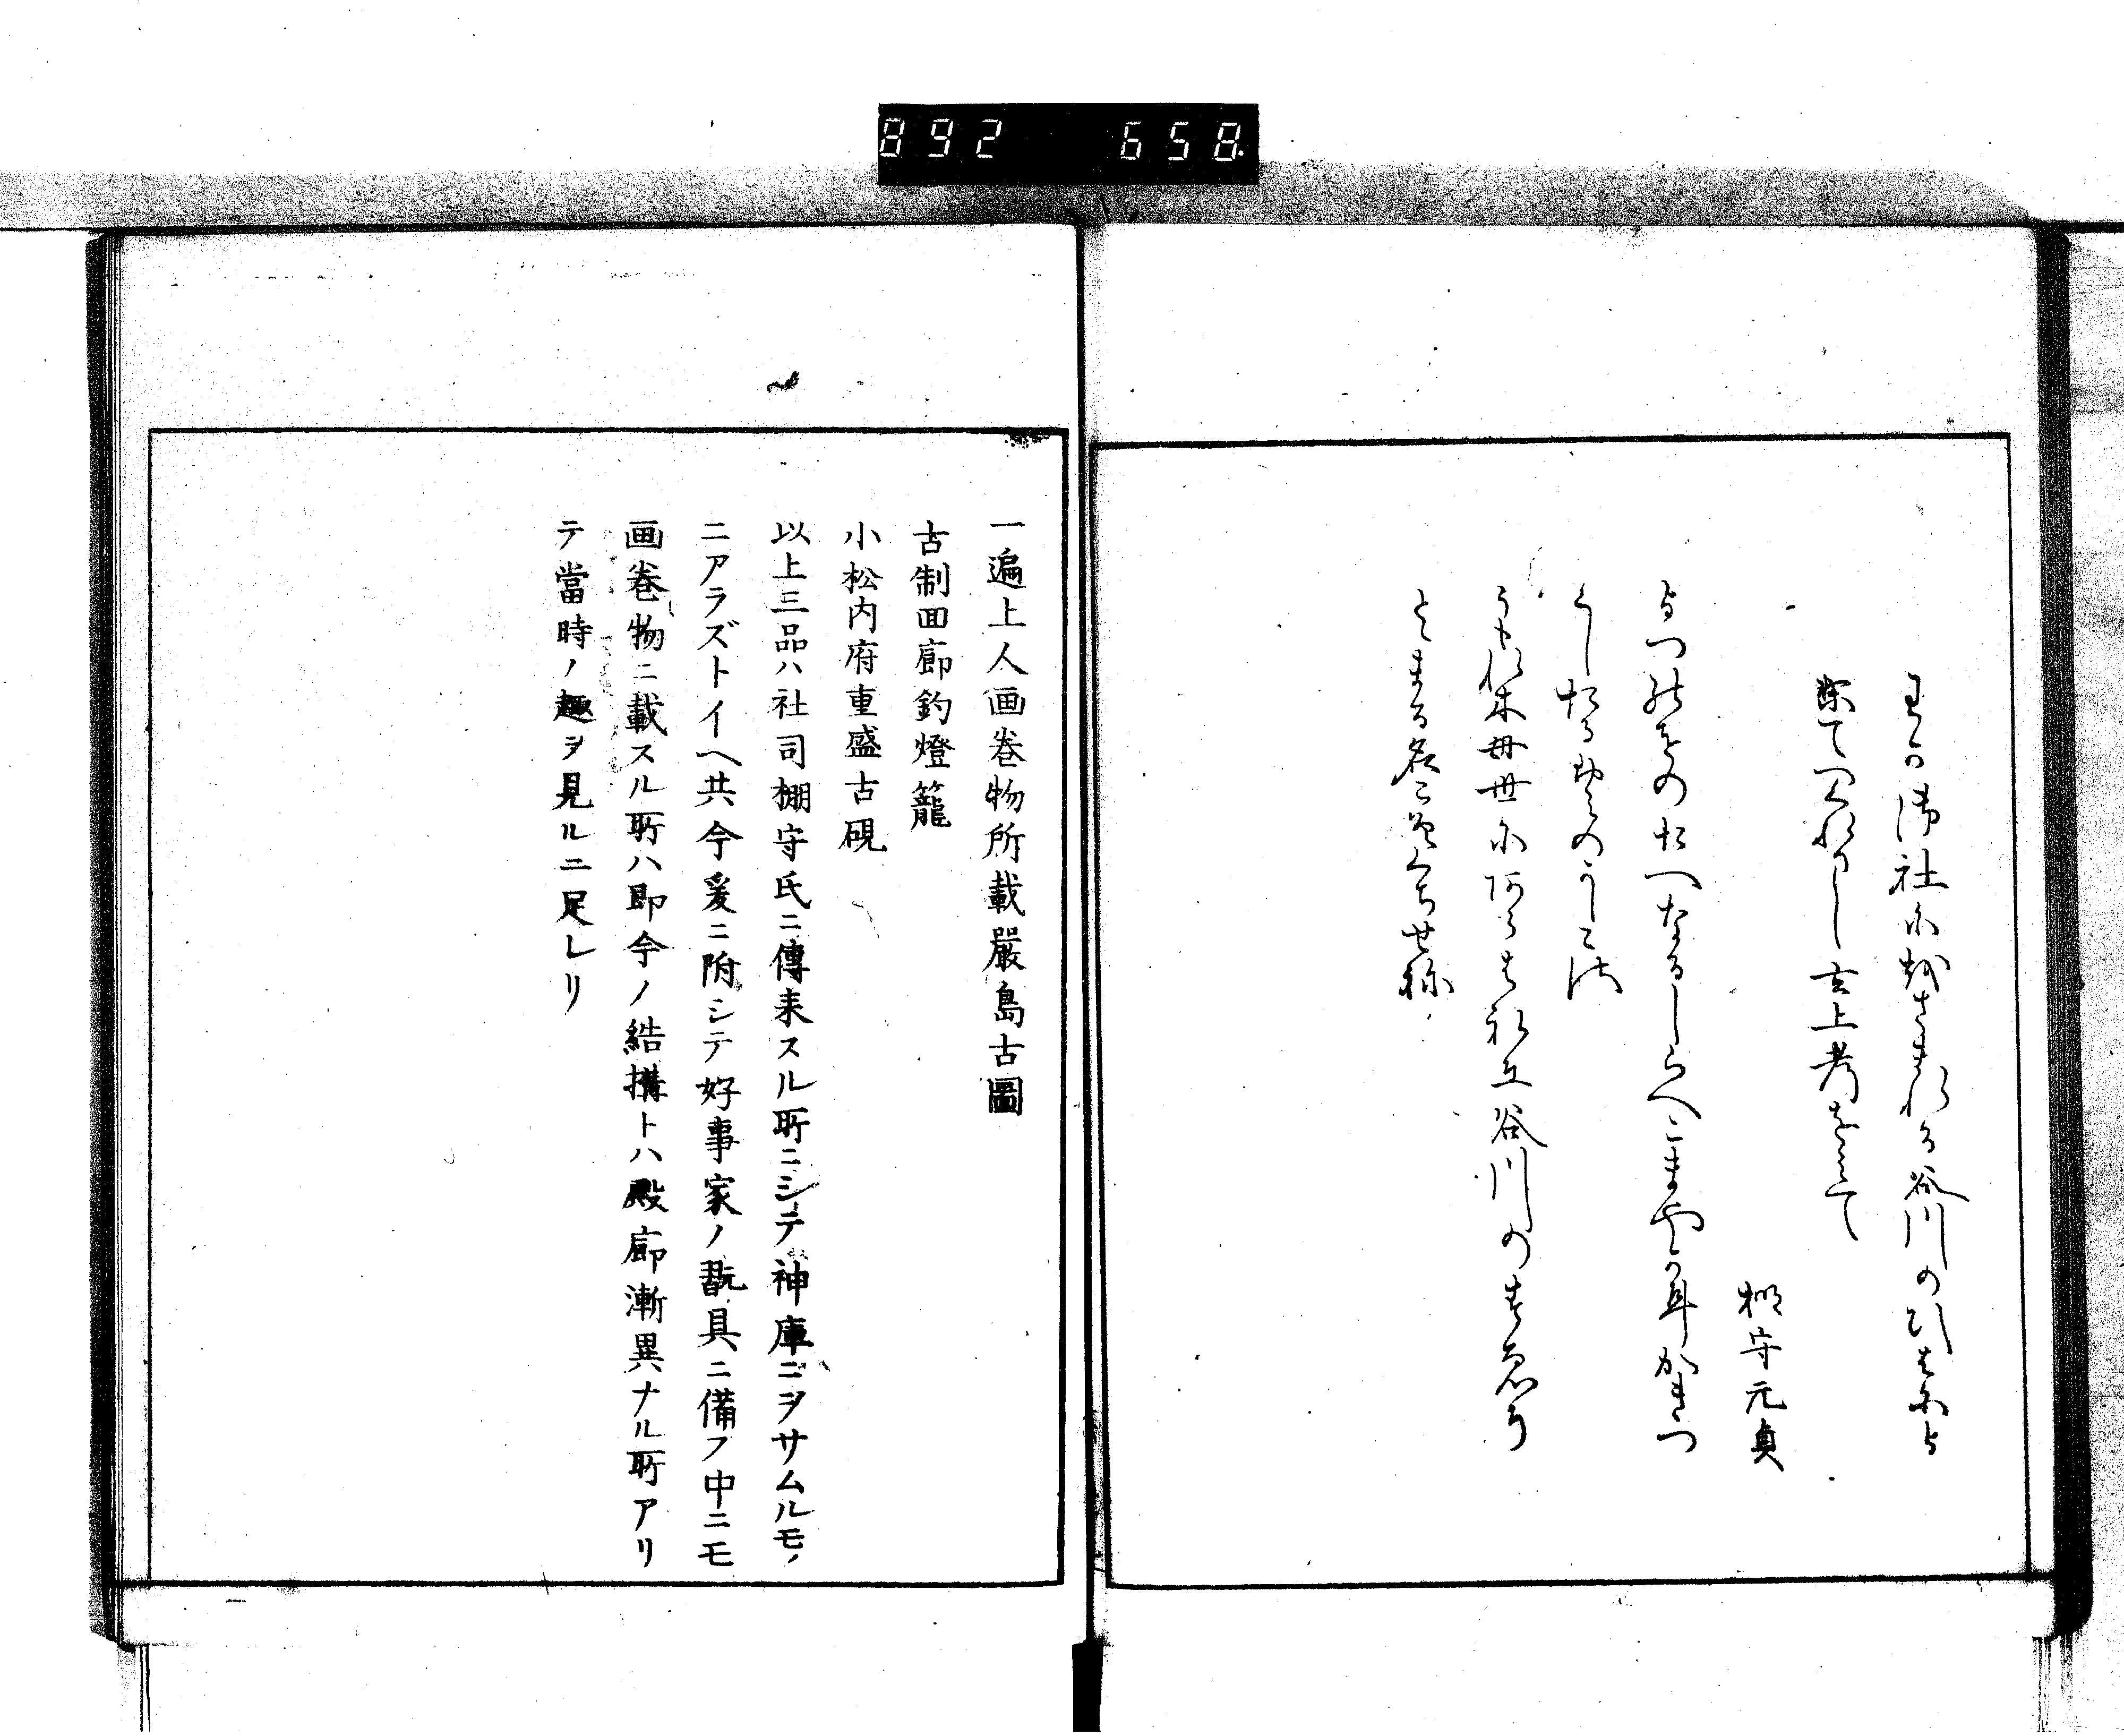 892 658
わか御社に越さまれる谷川のひはによ
せてつくれりし玄上考をミて
棚守元貞
よつのをのたへなるしらへこまやかにかきつ
くしたる
谷川の
とまる名こそくちせね
一遍上人画巻物所載嚴島古圖
古制回廊釣燈籠
小松内府重盛古硯
以上三品ハ社司棚守氏ニ傳来スル所ニシテ神庫ニヲサムルモノ
ニアラズトイヘ共今爰ニ附シテ好事家ノ翫具ニ備フ中ニモ
画巻物ニ載スル所ハ即今ノ結搆トハ殿廊漸異ナル所アリ
テ當時ノ趣ヲ見ルニ足レリ